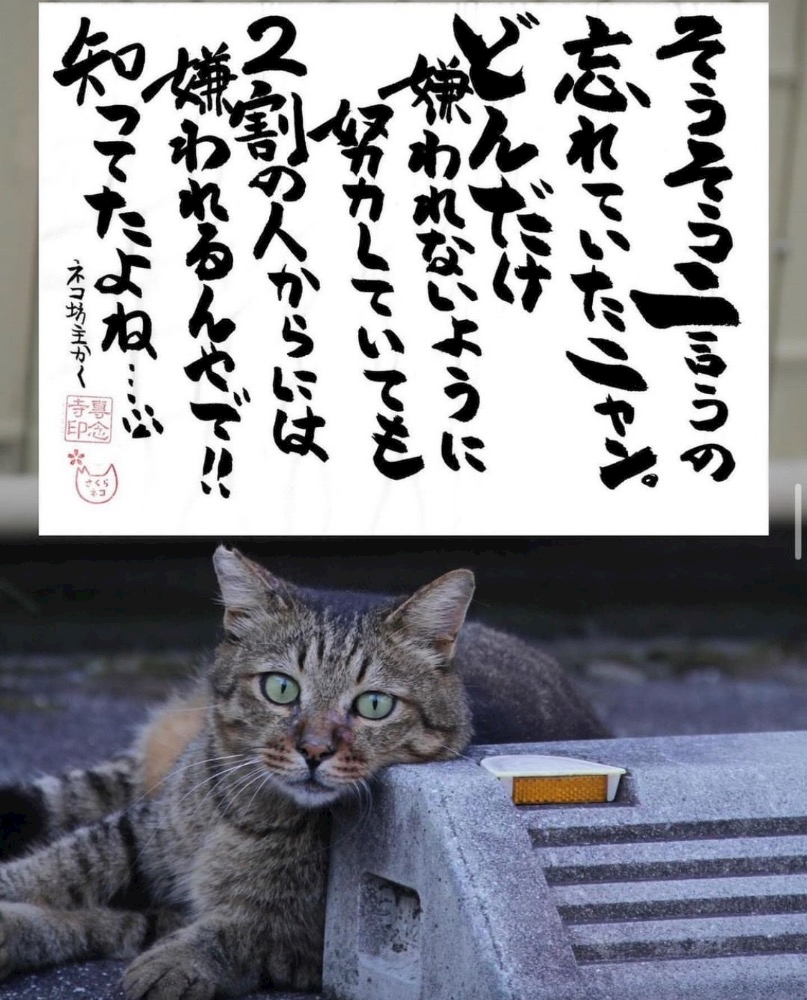 そうそう言うの
忘れていたニャン。
どんだけ
嫌われないように
努力していても
2割の人からには
嫌われるんやで!!
知ってたよね…
ネコ坊主かく
専念
寺印
さくら
ネコ